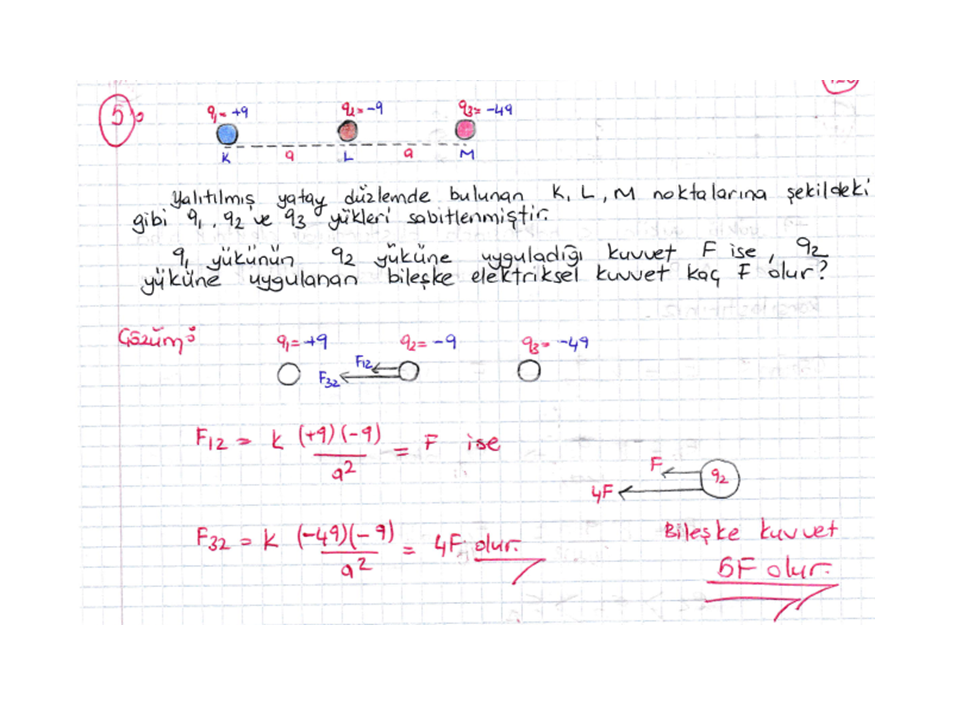 5:
q₁= +q q₂= -q q₃= -4q
K a L a M
Yalıtılmış yatay düzlemde bulunan K, L, M noktalarına şekildeki
gibi q₁, q₂ ve q₃ yükleri sabitlenmiştir.
q₁ yükünün q₂ yüküne uyguladığı kuvvet F ise, q₂
yüküne uygulanan bileşke elektriksel kuvvet kaç F olur?
Çözüm:
q₁= +q q₂= -q q₃= -4q
F₁₂
F₃₂
F₁₂ = k (+q)(-q) / a² = F ise
F q₂
4F
F₃₂ = k (-4q)(-q) / a² = 4F olur.
Bileşke kuvvet
5F olur.